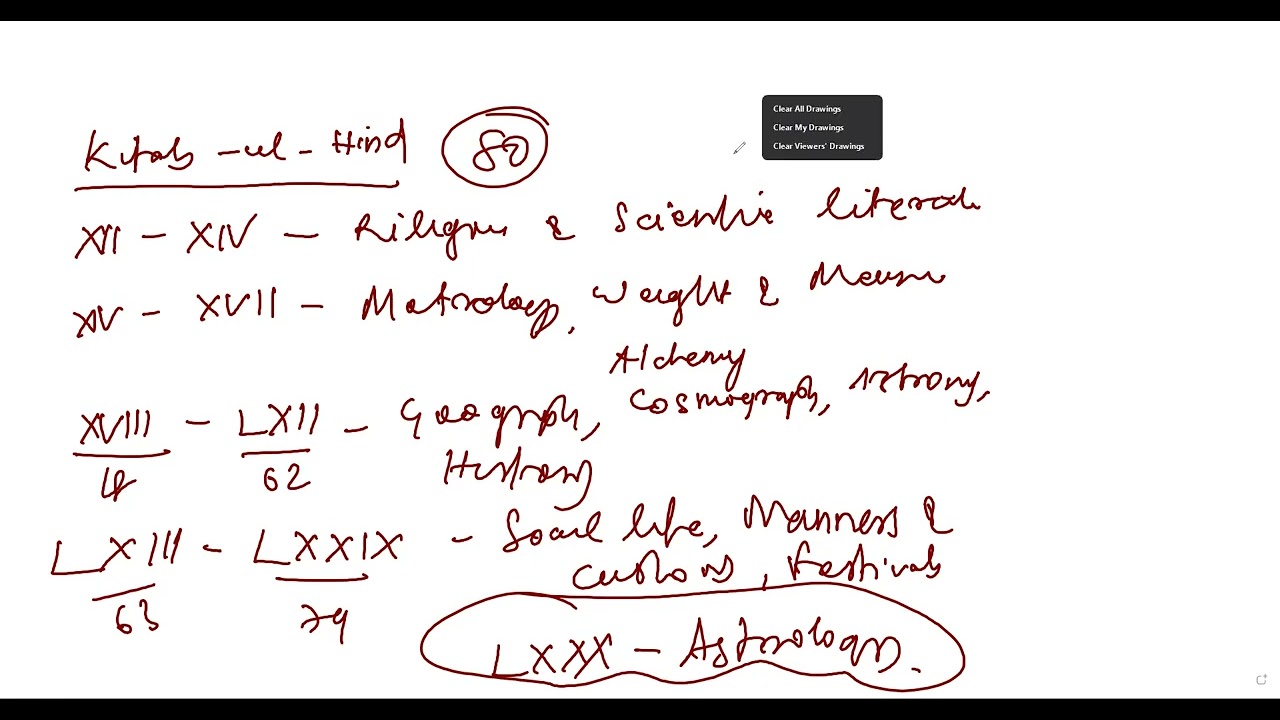 Clear All Drawings
Clear My Drawings
Clear Viewers' Drawings
Kitab-ul-Hind 80
XII - XIV - & Scientific
XV - XVII - Metrology, Weight &
Alchemy
XVIII - LXII - Geography, Cosmography, Astronomy,
18 62 History
LXIII - LXXIX - Social life, Manners &
customs, Festivals
63 79
LXXX - Astrology.